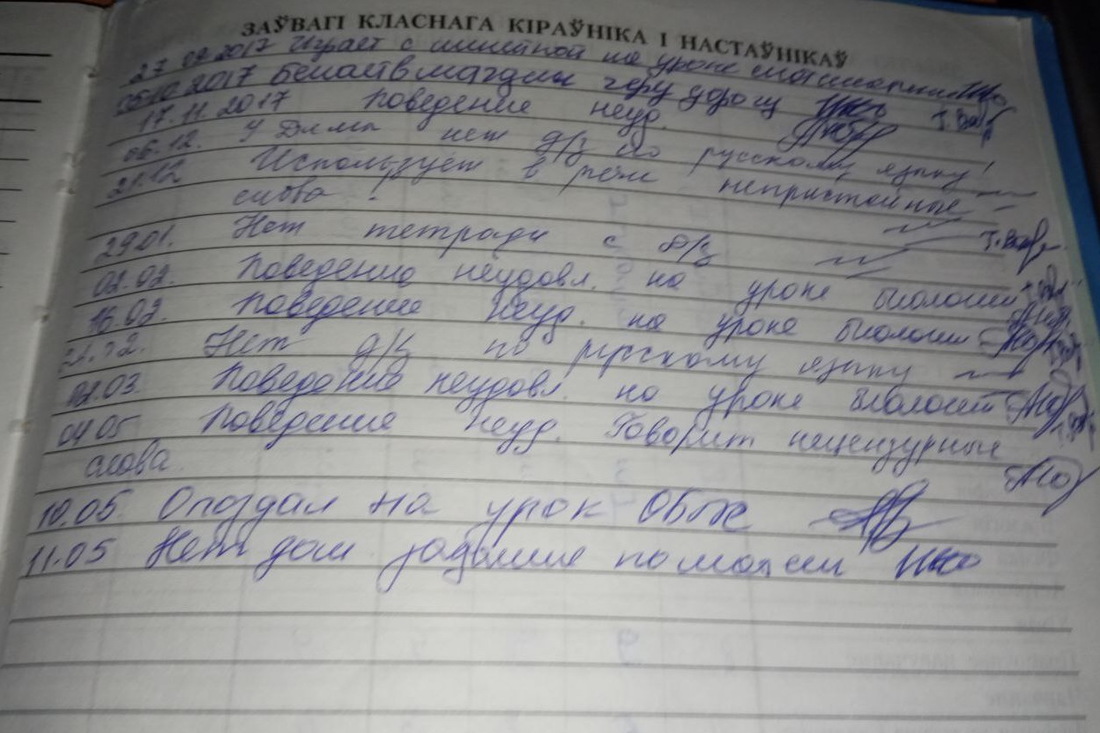 ЗАЎВАГІ КЛАСНАГА КІРАЎНІКА І НАСТАЎНІКАЎ
27.09.2017 Играет с на уроке математики
05.10.2017 Бегает в магазин через дорогу
17.11.2017 Поведение неуд. Т.Ва
06.12. У Димы нет д/з по русскому языку!
21.12 Использует в речи непристойные
слова!
29.01. Нет тетради с д/з
02.02. Поведение неудовл. на уроке биологии
16.02. Поведение неуд. на уроке биологии
22.02. Нет д/з по русскому языку
02.03. Поведение неудовл. на уроке биологии
04.05 Поведение неуд. Говорит нецензурные
слова.
10.05. Опоздал на урок ОБЖ
11.05 Нет дом задание по матем